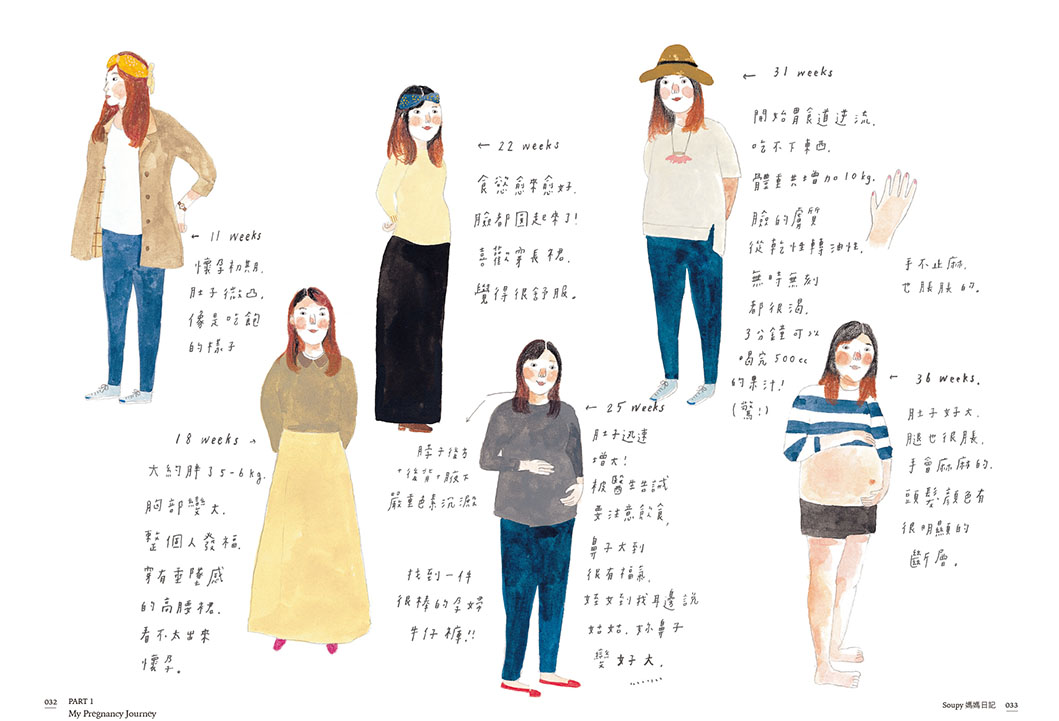 ← 11 weeks
懷孕初期.
肚子微凸,
像是吃飽
的樣子
18 weeks →
大約胖了5-6kg.
胸部變大.
整個人發福.
穿有垂墜感
的高腰裙.
看不太出來
懷孕。
← 22 weeks
食慾愈來愈好.
臉都圓起來了!
喜歡穿長裙.
覺得很舒服。
← 25 weeks
肚子迅速
增大!
被醫生告誡
要注意飲食,
鼻子大到
很有福氣.
姪女到我耳邊說
姑姑.妳鼻子
變好大.
........
脖子後方
、後背、腋下
嚴重色素沉澱
找到一件
很棒的孕婦
牛仔褲!!
← 31 weeks
開始胃食道逆流.
吃不下東西.
體重共增加10kg.
臉的膚質
從乾性轉油性.
無時無刻
都很渴.
3分鐘可以
喝完500cc
的果汁!
(驚!)
手不止麻.
也脹脹的.
← 36 weeks.
肚子好大.
腿也很脹.
手會麻麻的.
頭髮顏色有
很明顯的
斷層。
032 PART 1
My Pregnancy Journey
Soupy 媽媽日記 033